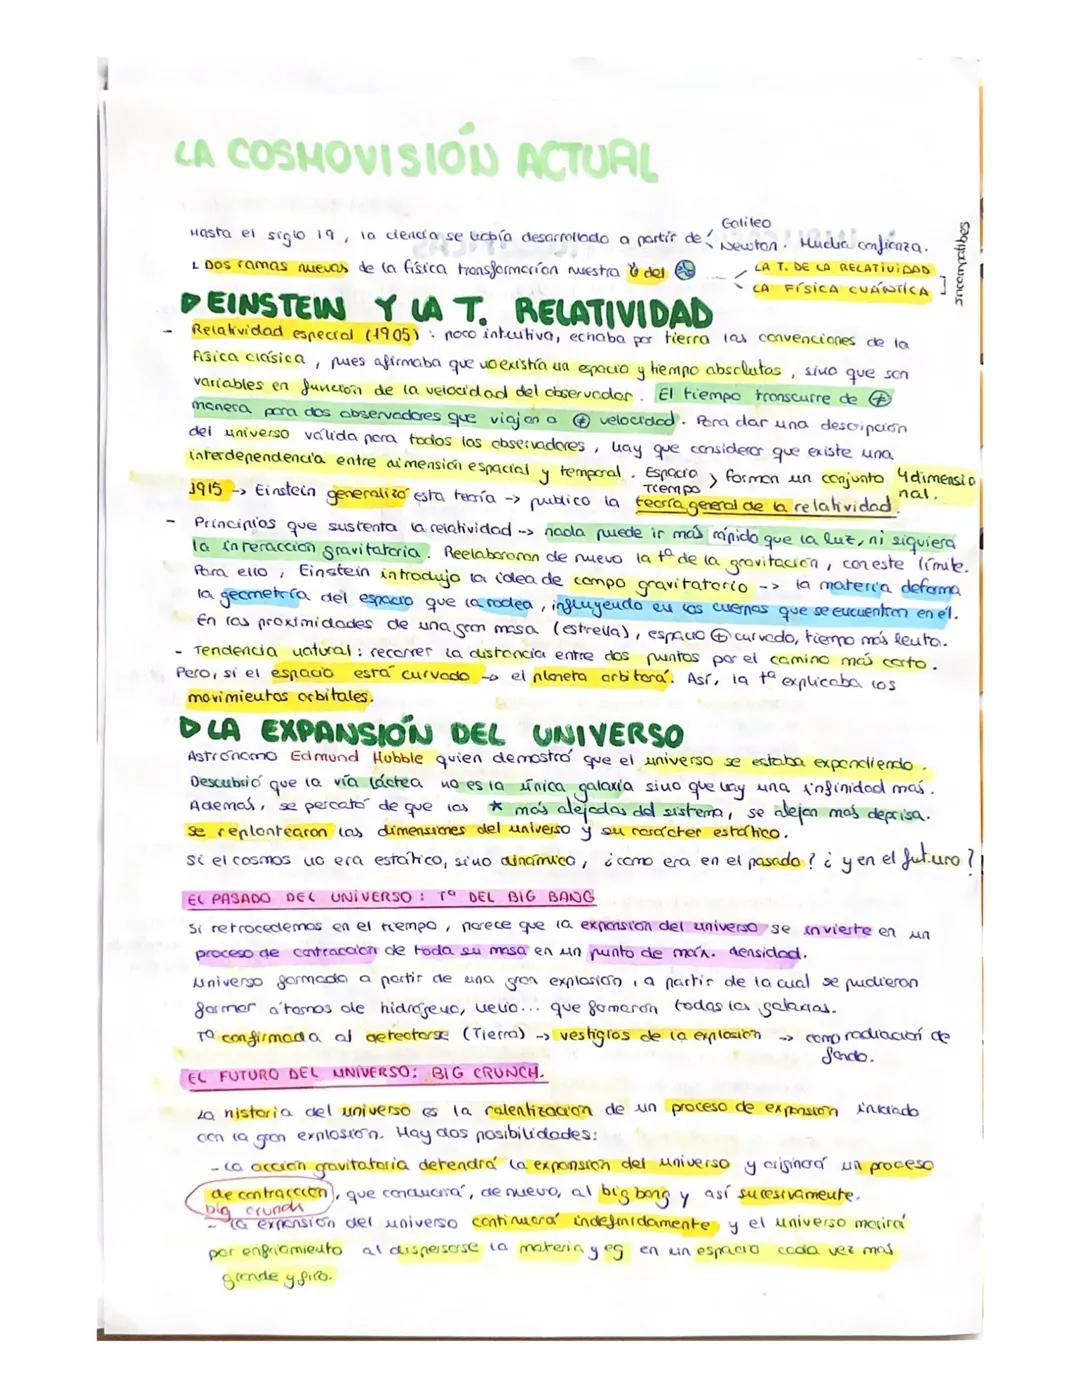 LA COSMOVISIÓN ACTUAL
Hasta el siglo 19, la ciencia se había desarrollado a partir de Galileo Newton. Mucha confianza.
Dos ramas nuevas de la física transformarían nuestra del LA T. DE LA RELATIVIDAD LA FÍSICA CUÁNTICA ] Incompatibles
EINSTEIN Y LA T. RELATIVIDAD
- Relatividad especial (1905): poco intuitiva, echaba por tierra las convenciones de la
física clásica, pues afirmaba que no existía un espacio y tiempo absolutos, sino que son
variables en función de la velocidad del observador. El tiempo transcurre de ≠
manera para dos observadores que viajan a ≠ velocidad. Para dar una descripción
del universo válida para todos los observadores, hay que considerar que existe una
interdependencia entre dimensión espacial y temporal. Espacio Tiempo > forman un conjunto 4dimensional.
1915 -> Einstein generalizó esta teoría -> publicó la teoría general de la relatividad.
- Principios que sustenta la relatividad --> nada puede ir más rápido que la luz, ni siquiera
la interacción gravitatoria. Reelaboraron de nuevo la tª de la gravitación, con este límite.
Para ello, Einstein introdujo la idea de campo gravitatorio --> la materia deforma
la geometría del espacio que la rodea, influyendo en los cuerpos que se encuentran en él.
En las proximidades de una gran masa (estrella), espacio ⊕ curvado, tiempo más lento.
- Tendencia natural: recorrer la distancia entre dos puntos por el camino más corto.
Pero, si el espacio está curvado -> el planeta orbitará. Así, la tª explicaba los
movimientos orbitales.
LA EXPANSIÓN DEL UNIVERSO
Astrónomo Edmund Hubble quien demostró que el universo se estaba expandiendo.
Descubrió que la vía láctea no es la única galaxia sino que hay una infinidad más.
Además, se percató de que las * más alejadas del sistema, se alejan más deprisa.
Se replantearon las dimensiones del universo y su carácter estático.
Si el cosmos no era estático, sino dinámico, ¿cómo era en el pasado? ¿y en el futuro?
EL PASADO DEL UNIVERSO: Tª DEL BIG BANG
Si retrocedemos en el tiempo, parece que la expansión del universo se invierte en un
proceso de contracción de toda su masa en un punto de máx. densidad.
Universo formado a partir de una gran explosión, a partir de la cual se pudieron
formar átomos de hidrógeno, helio... que formarón todas las galaxias.
Tª confirmada al detectarse (Tierra) -> vestigios de la explosión -> como radiación de
fondo.
EL FUTURO DEL UNIVERSO: BIG CRUNCH.
La historia del universo es la ralentización de un proceso de expansión iniciado
con la gran explosión. Hay dos posibilidades:
- La acción gravitatoria detendrá la expansión del universo y originará un proceso
de contracción, que conducirá, de nuevo, al big bang y así sucesivamente.
big crunch
- La expansión del universo continuará indefinidamente y el universo morirá
por enfriamiento al dispersarse la materia y eg en un espacio cada vez más
grande y frío.